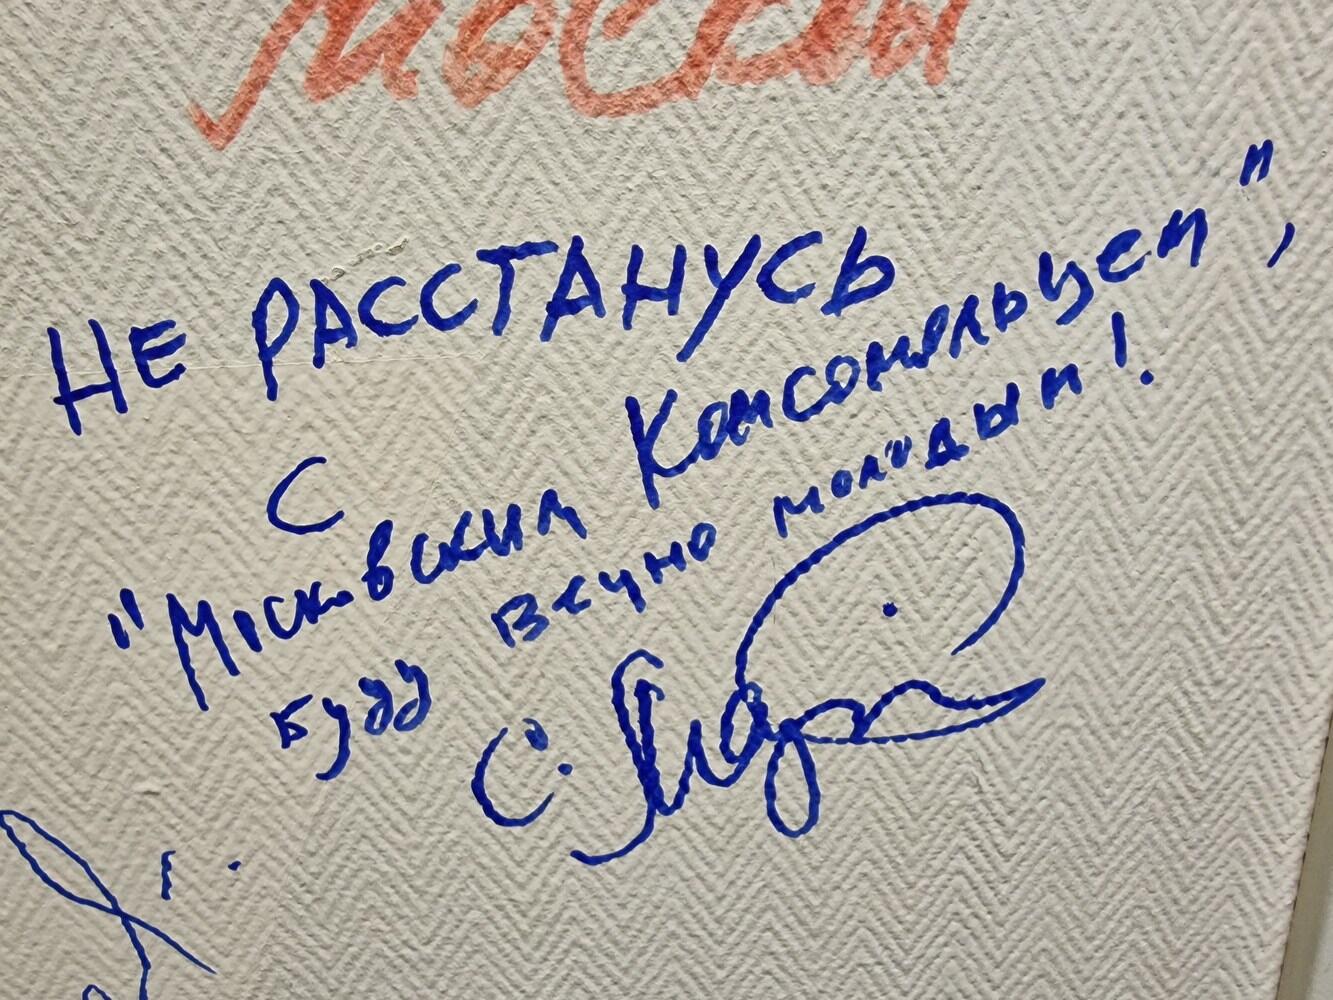 Москвы
НЕ РАССТАНУСЬ
С
"Московским Комсомольцем",
Буду вечно молодым!